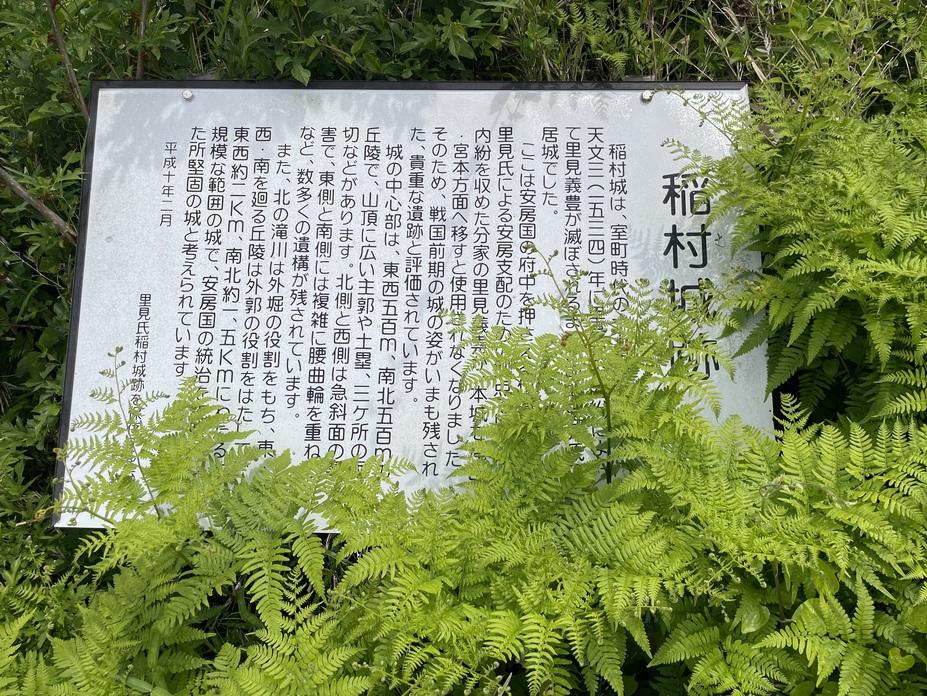 稲村城跡
稲村城は、室町時代の
天文三(一五三四)年に
て里見義豊が滅ぼされるま
居城でした。
ここは安房国の府中を押
里見氏による安房支配のた
内紛を収めた分家の里見義
・宮本方面へ移すと使用されなくなりました
そのため、戦国前期の城の姿がいまも残され
た、貴重な遺跡と評価されています。
城の中心部は、東西五百m、南北五百m
丘陵で、山頂に広い主郭や土塁、三ケ所の
切などがあります。北側と西側は急斜面の
害で、東側と南側には複雑に腰曲輪を重ね
など、数多くの遺構が残されています。
また、北の滝川は外堀の役割をもち、東
西・南を廻る丘陵は外郭の役割をはた
東西約二Km、南北約一.五Kmに
規模な範囲の城で、安房国の統治
た所堅固の城と考えられています
平成十年二月
里見氏稲村城跡を